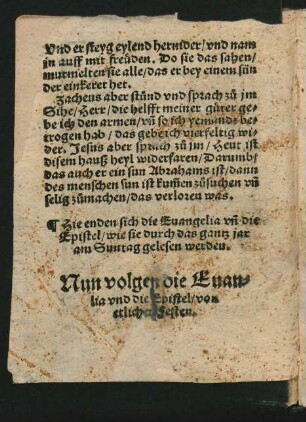 Vnd er steyg eylend hernider/vnd nam
jn auff mit freüden. Do sie das sahen/
murmelten sie alle/das er bey einem sün
der einkeret her.
Zacheus aber stünd vnd sprach zů jm
Sihe/Herr/die helfft meiner gůter gebe
ich den armen/vñ so ich yemands be⸗
trogen hab/das gebe ich vierfeltig wi⸗
der. Jesus aber sprach zů jm/Heut ist
disem hauß heyl widerfaren/Darumb/
das auch er ein sun Abrahams ist/dann
des menschen sun ist kum̃en zůsuchen vñ
selig zůmachen/das verloren was.
¶ Hie enden sich die Euangelia vñ die
Epistel/wie sie durch das gantz jar
am Suntag gelesen werden.
Nun volgen die Euan⸗
lia vnd die Epistel/von
etlichen Festen.